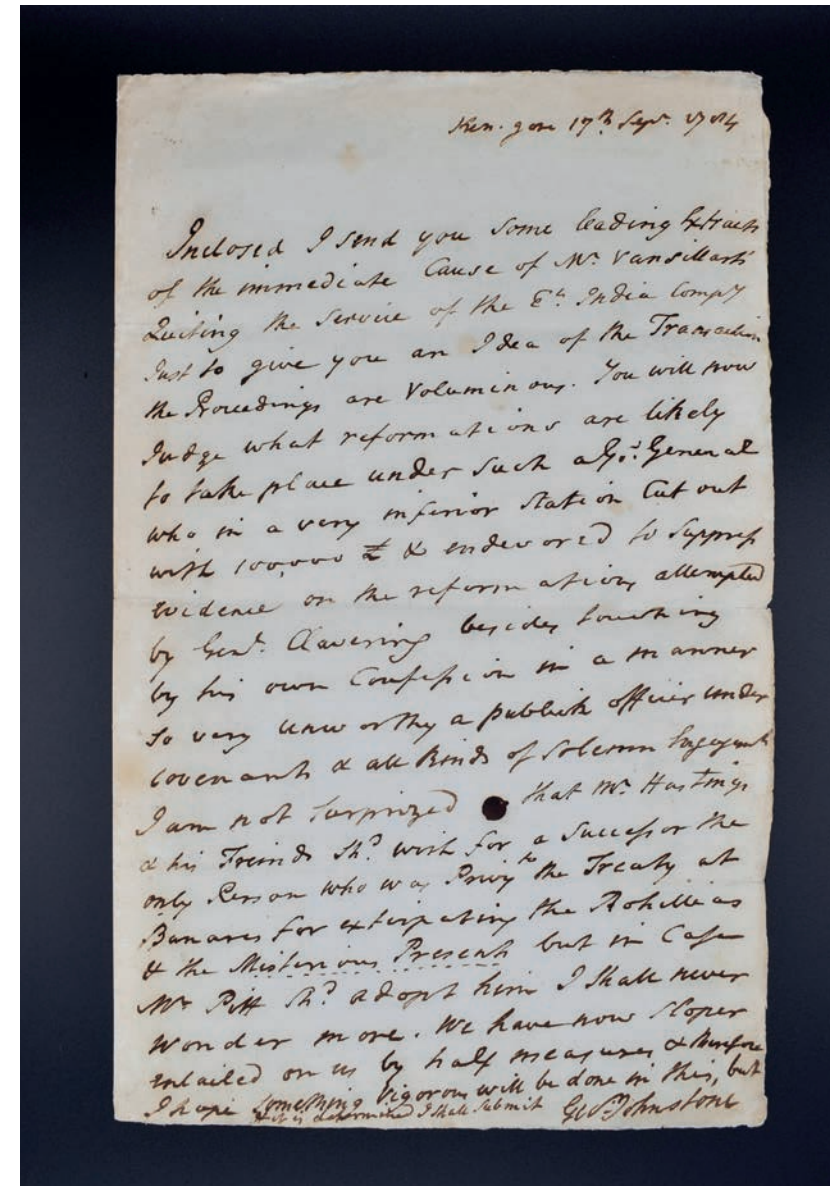 17th Sepr. 1784
Inclosed I send you Some leading Extracts
of the immediate Cause of Mr. Vansittarts
Quiting the Service of the Et. India Compy
Just to give you an Idea of the Transaction
the Proceedings are Voluminous. You will now
Judge what reformations are likely
to take place under Such a Gr. General
who in a very inferior Station Cut out
with 100,000 £ & endevored to Suppress
evidence on the reformations attempted
by Genl. Clavering besides touching
by his own Confession in a manner
So very unworthy a publick officer under
Covenants & all Kinds of Solemn Engagements
I am not Surprized that Mr. Hastings
& his Freinds Shd. wish for a Successor the
only Person who was Privy to the Treaty at
Banares for extirpating the Rohillias
& the Misterious Presents but in Case
Mr Pitt Shd. adopt him I Shall never
wonder more. We have now Sloper
entailed on us by half measures & therefore
I hope Something Vigorous will be done in this, but
if it is determined I Shall Submit Geo. Johnstone